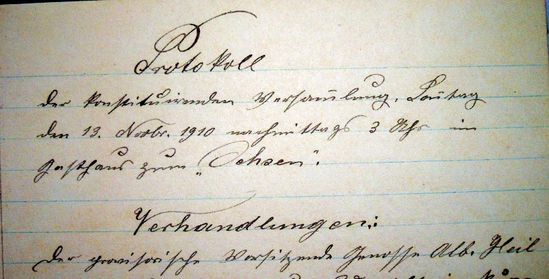 Protokoll
der konstituirenden Versammlung, Sontag
den 13. Novbr. 1910 nachmittags 3 Uhr im
Gasthaus zum „Ochsen".
Verhandlungen:
Der provisorische Vorsitzende Genosse Alb. Heil